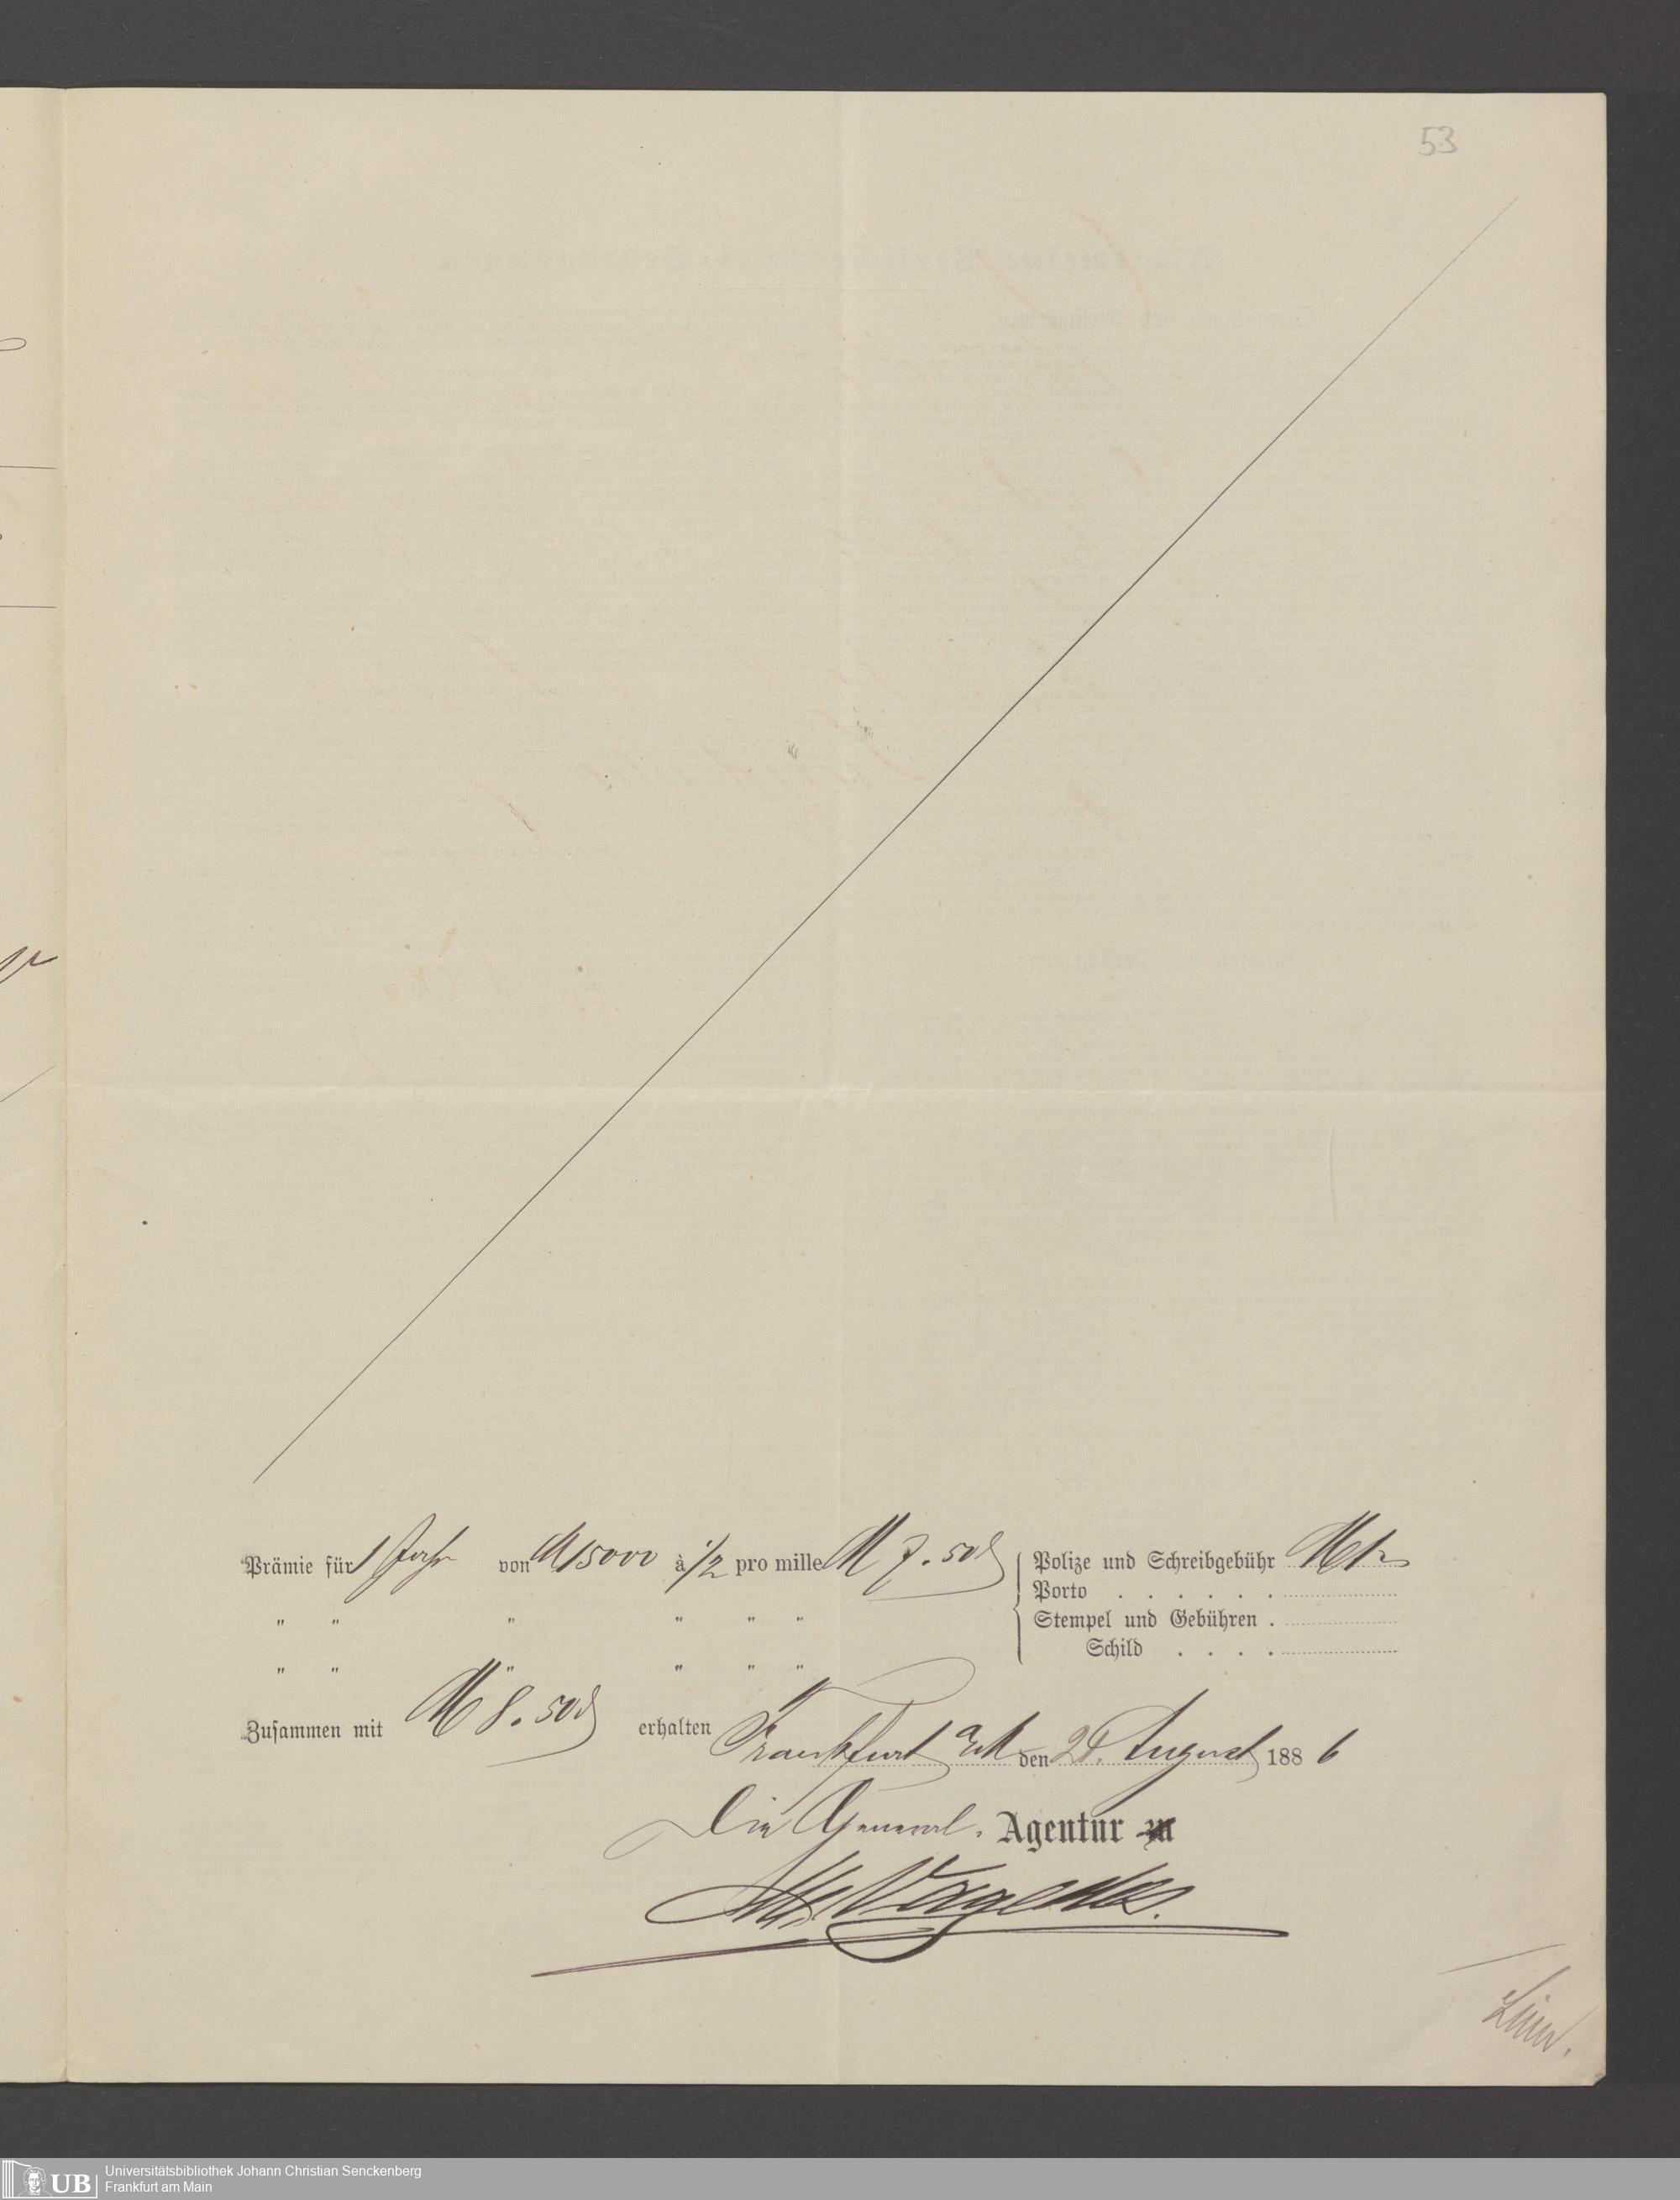 53
Prämie für 1 Jahr von M 15000 à 1/2 pro mille M 7.50 ₰
Polize und Schreibgebühr M 1
Porto . . . . . .
" " " " " "
Stempel und Gebühren .
Schild . . . .
" " " " " "
Zusammen mit M 8.50 ₰ erhalten Frankfurt a/M den 24. August 1886
Die General-Agentur zu
UB
Universitätsbibliothek Johann Christian Senckenberg
Frankfurt am Main